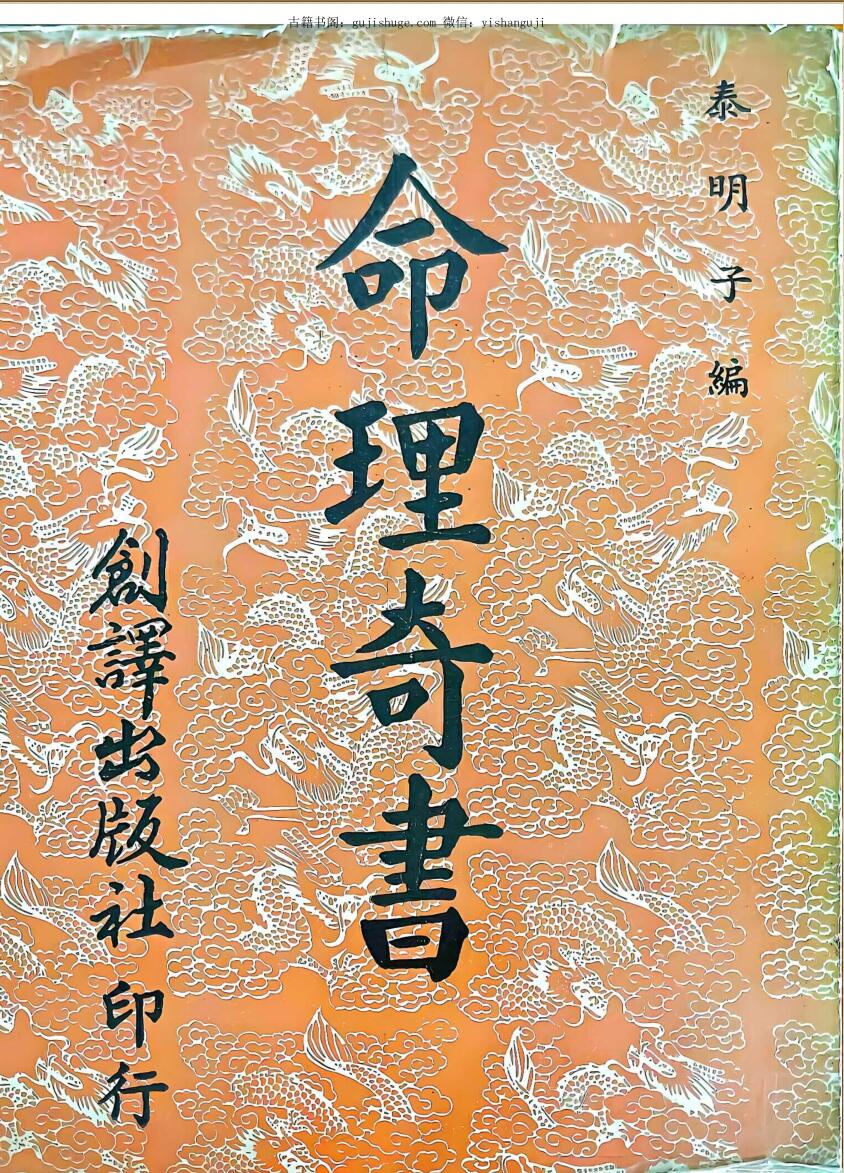 古籍书阁：gujishuge.com 微信：yishanguji
泰明子編
命理奇書
創譯出版社印行